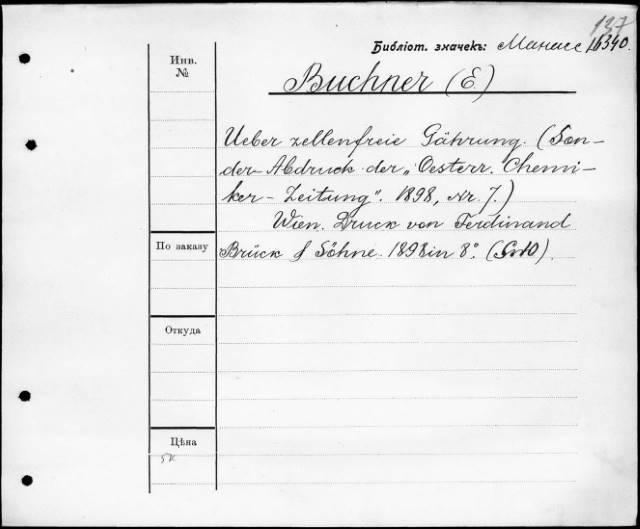 137
Библіот. значекъ: Манасс 16340.
Инв.
№
Buchner (E)
Ueber zellenfreie Gährung. (Son-
der-Abdruck der „Oesterr. Chemi-
ker-Zeitung". 1898, Nr. 7.)
Wien. Druck von Ferdinand
Brück & Söhne. 1898 in 8°.
По заказу
Откуда
Цѣна